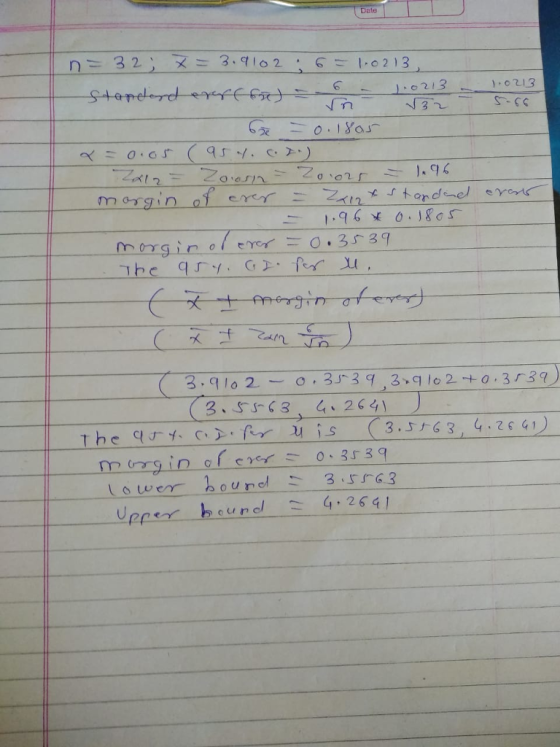 Date
n = 32 ; x̄ = 3.9102 ; 6 = 1.0213,
standard error(6x̄) = 6/√n = 1.0213/√32 = 1.0213/5.66
6x̄ = 0.1805
α = 0.05 (95%. C.I.)
Zα/2 = Z0.05/2 = Z0.025 = 1.96
margin of error = Zα/2 * standard error
= 1.96 * 0.1805
margin of error = 0.3539
The 95%. C.I. for μ.
(x̄ ± margin of error)
(x̄ ± Zα/2 6/√n)
(3.9102 - 0.3539, 3.9102 + 0.3539)
(3.5563, 4.2641)
The 95%. C.I. for μ is (3.5563, 4.2641)
margin of error = 0.3539
lower bound = 3.5563
Upper bound = 4.2641